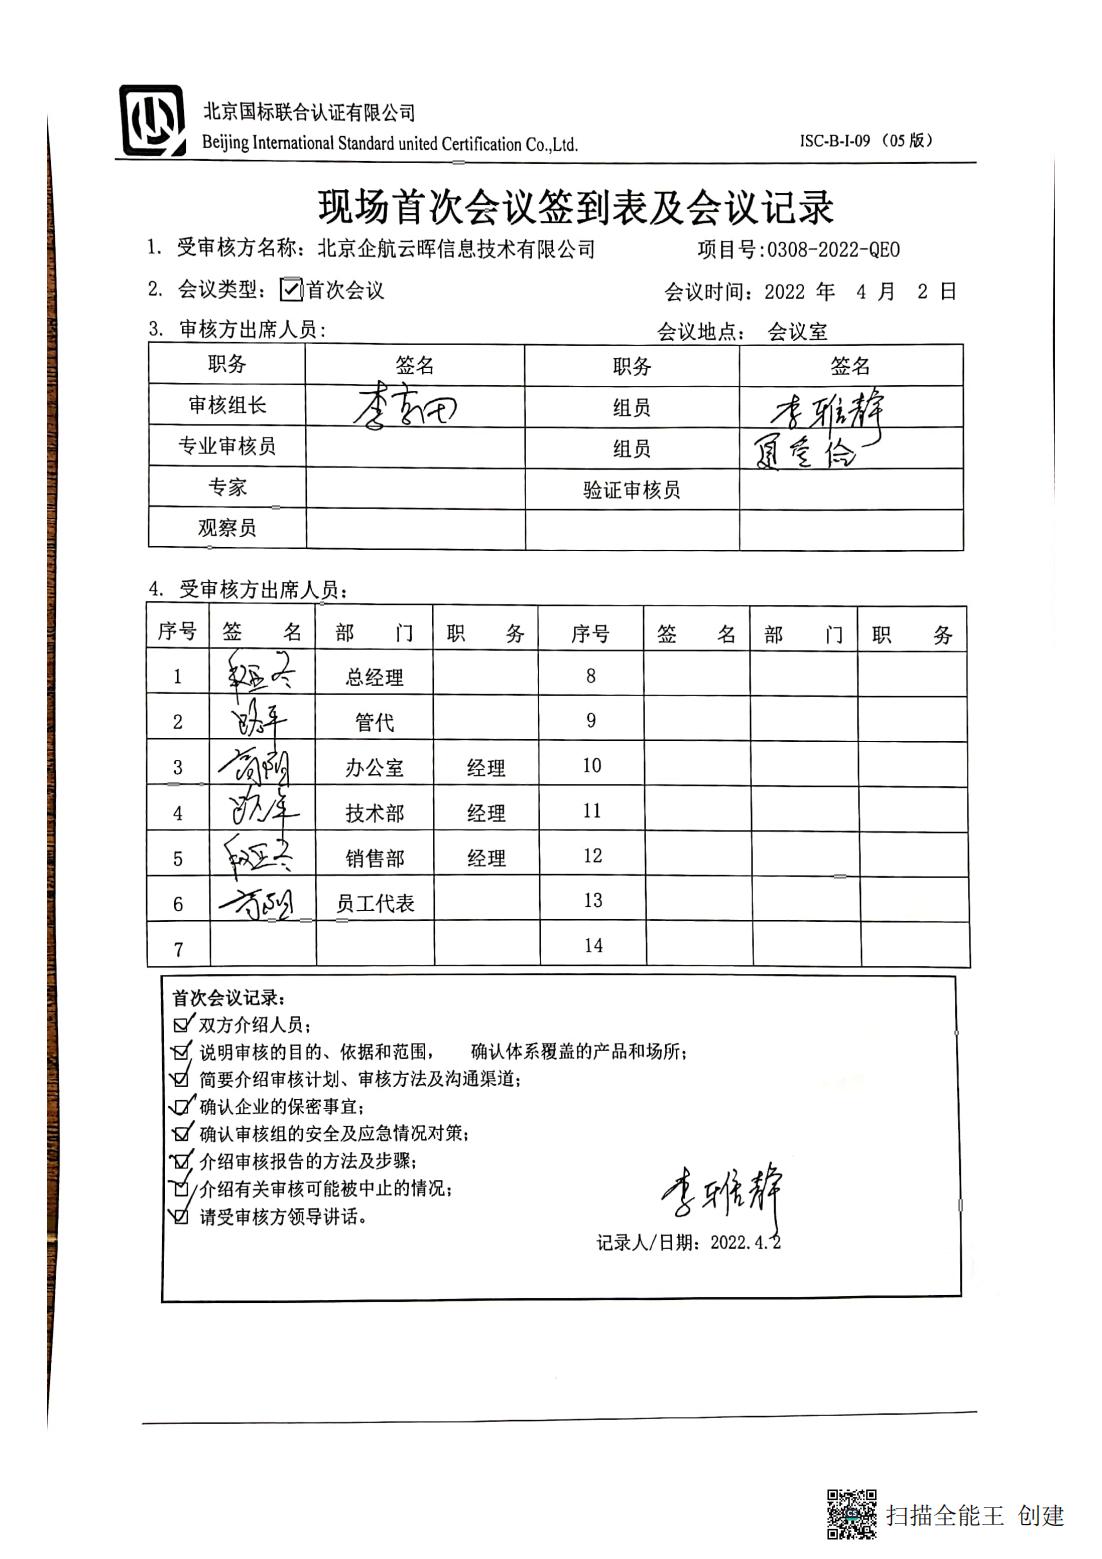 北京国标联合认证有限公司
Beijing International Standard united Certification Co.,Ltd.
ISC-B-I-09 （05 版）
现场首次会议签到表及会议记录
1. 受审核方名称：北京企航云晖信息技术有限公司 项目号:0308-2022-QEO
2. 会议类型：首次会议 会议时间：2022 年 4 月 2 日
3. 审核方出席人员： 会议地点： 会议室
职务 签名 职务 签名
审核组长 李京田 组员 李雅静
专业审核员 组员
专家 验证审核员
观察员
4. 受审核方出席人员：
序号 签 名 部 门 职 务 序号 签 名 部 门 职 务
1 总经理 8
2 管代 9
3 办公室 经理 10
4 技术部 经理 11
5 销售部 经理 12
6 员工代表 13
7 14
首次会议记录：
双方介绍人员；
说明审核的目的、依据和范围， 确认体系覆盖的产品和场所；
简要介绍审核计划、审核方法及沟通渠道；
确认企业的保密事宜；
确认审核组的安全及应急情况对策；
介绍审核报告的方法及步骤；
介绍有关审核可能被中止的情况；
请受审核方领导讲话。
李雅静
记录人/日期：2022.4.2
扫描全能王 创建